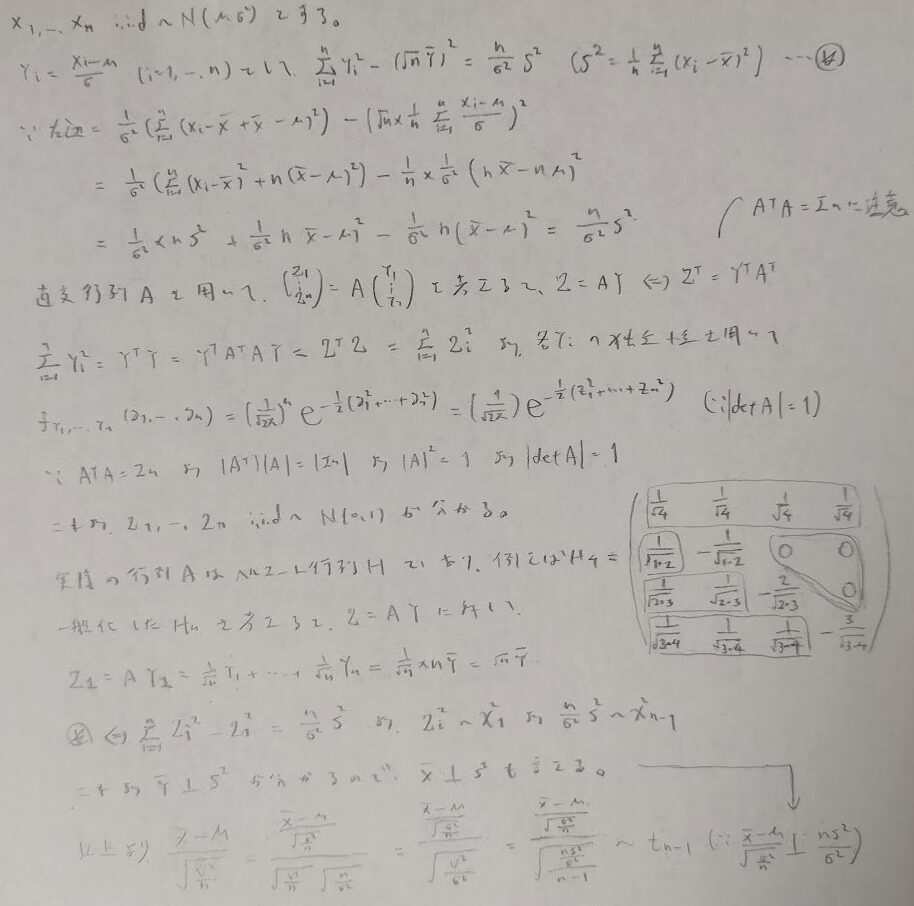 X₁, …, Xₙ i.i.d ~ N(μ, σ²) とする。
Yᵢ = (Xᵢ-μ)/σ (i=1, …, n) として、 Σᵢ₌₁ⁿ Yᵢ² - (√n Ȳ)² = n/σ² S² (S² = 1/n Σᵢ₌₁ⁿ (Xᵢ - X̄)²) … ㊕
∵ 左辺 = 1/σ² (Σᵢ₌₁ⁿ (Xᵢ - X̄ + X̄ - μ)²) - (√n × 1/n Σᵢ₌₁ⁿ (Xᵢ-μ)/σ)²
= 1/σ² (Σᵢ₌₁ⁿ (Xᵢ-X̄)² + n(X̄-μ)²) - 1/n × 1/σ² (nX̄ - nμ)²
= 1/σ² × nS² + 1/σ² n(X̄-μ)² - 1/σ² n(X̄-μ)² = n/σ² S²
AᵀA = Iₙに注意
直交行列 A を用いて、 (Z₁ ⋮ Zₙ) = A (Y₁ ⋮ Yₙ) を考えると、 Z = AY ⇔ Zᵀ = YᵀAᵀ
Σᵢ₌₁ⁿ Yᵢ² = YᵀY = YᵀAᵀAY = ZᵀZ = Σᵢ₌₁ⁿ Zᵢ² より、各Yᵢの対を用いて
f_Y₁,…,Yₙ (y₁, …, yₙ) = (1/√2π)ⁿ e^(-1/2 (y₁² + … + yₙ²)) = (1/√2π) e^(-1/2 (Z₁² + … + Zₙ²)) (∵ |det A| = 1)
∵ AᵀA = Iₙ より |Aᵀ||A| = |Iₙ| より |A|² = 1 より |det A| = 1
これより Z₁, …, Zₙ i.i.d ~ N(0,1) が分かる。
実際の行列 A はヘルマート行列 H であり、例えば H₄ = (1/√4 1/√4 1/√4 1/√4
1/√1・2 -1/√1・2 0 0
1/√2・3 1/√2・3 -2/√2・3 0
1/√3・4 1/√3・4 1/√3・4 -3/√3・4)
一般化した Hₙ を考えると、 Z = AY において、
Z₁ = AY₁ = 1/√n Y₁ + … + 1/√n Yₙ = 1/√n × nȲ = √n Ȳ
⇔ Σᵢ₌₁ⁿ Zᵢ² - Z₁² = n/σ² S² より、 Zᵢ² ~ χ²₁ より n/σ² S² ~ χ²ₙ₋₁
これより Ȳ ⊥ S² が分かるので、 X̄ ⊥ S² も言える。
以上より (X̄-μ)/√(U²/n) = ((X̄-μ)/√(σ²/n))/(√(U²/n) √(n/σ²)) = ((X̄-μ)/√(σ²/n))/√(U²/σ²) = ((X̄-μ)/√(σ²/n))/√((nS²/σ²)/(n-1)) ~ tₙ₋₁ (∵ (X̄-μ)/√(σ²/n) ⊥ nS²/σ²)